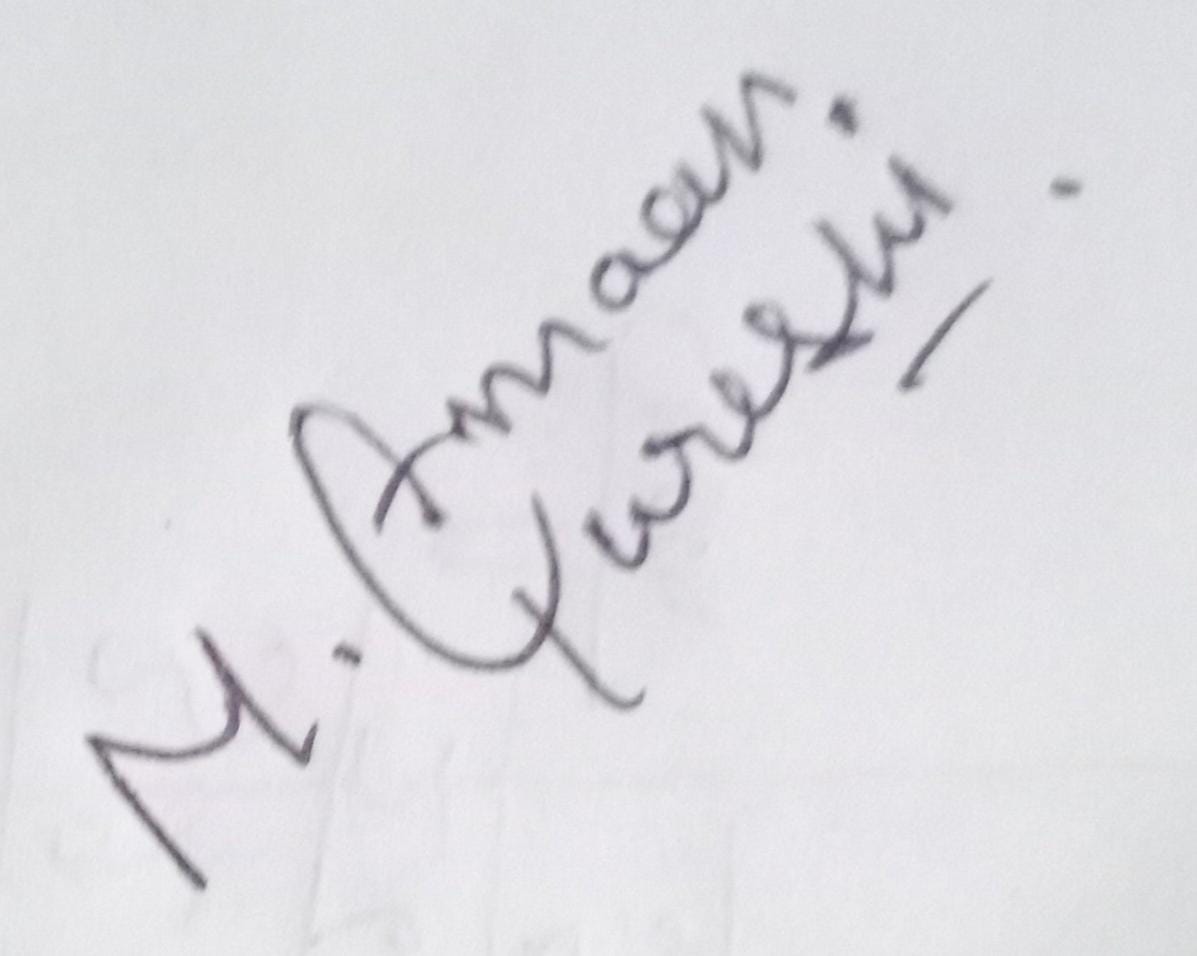 M. Amaan.
Qureshi.